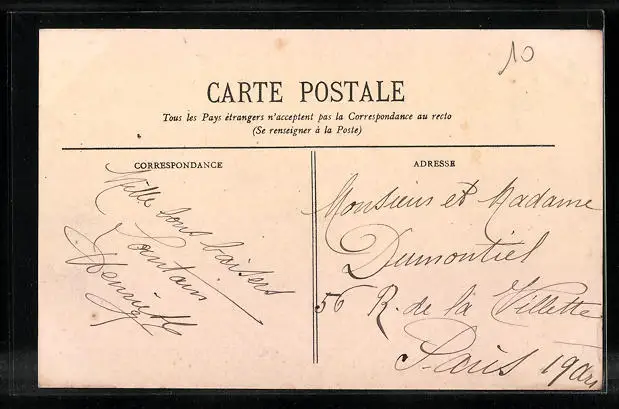 10
CARTE POSTALE
Tous les Pays étrangers n'acceptent pas la Correspondance au recto
(Se renseigner à la Poste)
CORRESPONDANCE
ADRESSE
Mille bons baisers
Lointains
Monsieur et Madame
Dumontiel
56 R. de la Villette
Paris 19